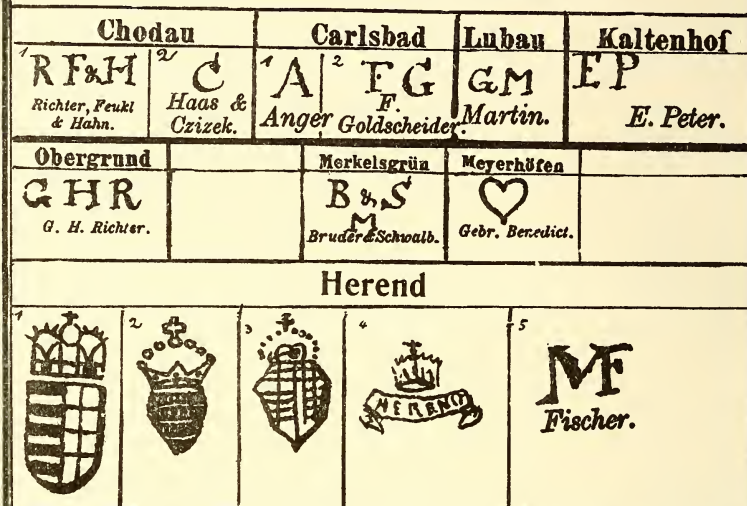 Chodau Carlsbad Lubau Kaltenhof
1 R F & H 2 C 1 A 2 F G G M E P
Richter, Feukl & Hahn.
Haas & Czizek.
Anger
F. Goldscheider.
Martin.
E. Peter.
Obergrund Merkelsgrün Meyerhöfen
G H R B & S
M
G. H. Richter. Bruder & Schwalb. Gebr. Benedict.
Herend
1 2 3 4 5
HEREND
MF
Fischer.